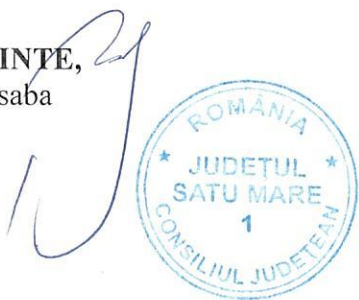 INTE,
saba
ROMÂNIA
* JUDEȚUL *
SATU MARE
1
CONSILIUL JUDEȚEAN